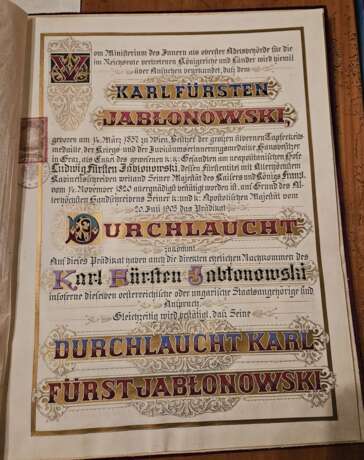 Vom Ministerium des Innern als oberster Adelsbehörde für die
im Reichsrate vertretenen Königreiche und Länder wird hiemit
über Ansuchen beurkundet, daß dem
KARL FÜRSTEN
JABŁONOWSKI,
geboren am 14. März 1857 in Wien, Besitzer der großen silbernen Tapferkeits-
medaille, der Kriegs- und der Jubiläumserinnerungsmedaille, Hausbesitzer
in Graz, als Enkel des gewesenen k: k: Gesandten am neapolitanischen Hofe
Ludwig Fürsten Jabłonowski, dessen Fürstenstand mit Allerhöchstem
Kabinetschreiben weiland Seiner Majestät des Kaisers und Königs Franz I.
vom 14. November 1820 allergnädigst bestätigt worden ist, auf Grund des Al-
lerhöchsten Handschreibens Seiner k: und k: Apostolischen Majestät vom
20. Juni 1905 das Prädikat
DURCHLAUCHT
zukommt.
Auf dieses Prädikat haben auch die direkten ehelichen Nachkommen des
Karl Fürsten Jabłonowski
insoferne dieselben oesterreichische oder ungarische Staatsangehörige sind
Anspruch.
Gleichzeitig wird bestätigt, daß Seine
DURCHLAUCHT KARL
FÜRST JABŁONOWSKI